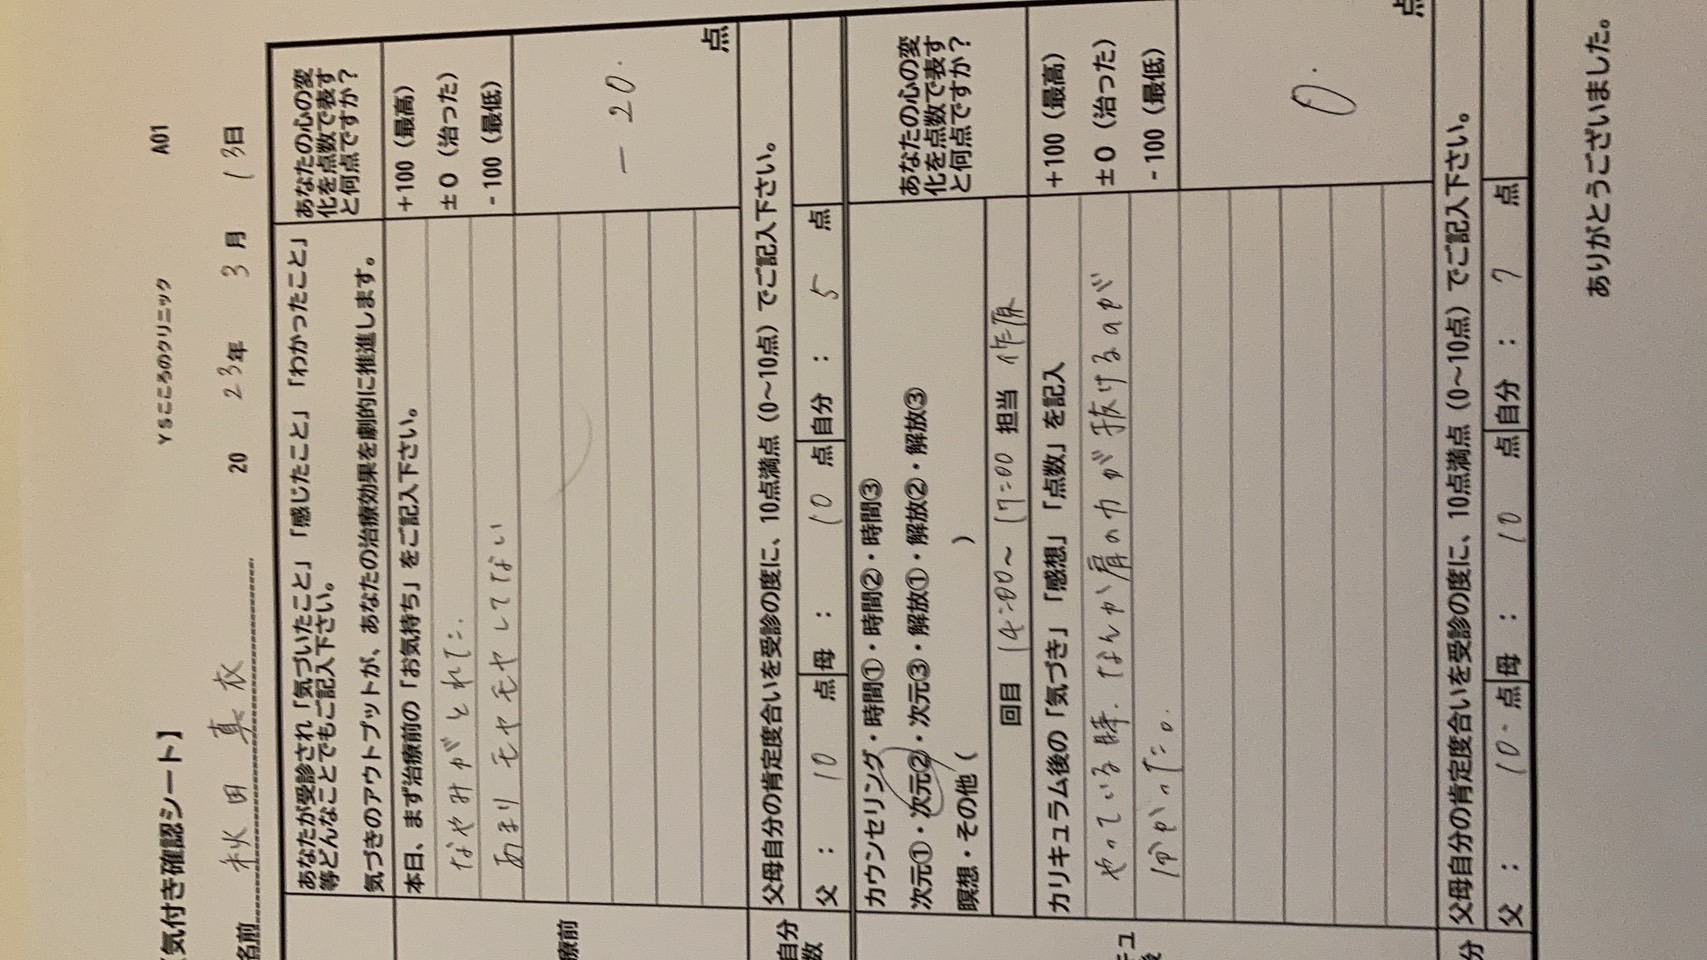 【気付き確認シート】 YSこころのクリニック A01
名前 秋田 真衣 20 23年 3月 13日
あなたが受診され「気づいたこと」「感じたこと」「わかったこと」
等どんなことでもご記入下さい。
気づきのアウトプットが、あなたの治療効果を劇的に推進します。
あなたの心の変
化を点数で表す
と何点ですか？
療前
本日、まず治療前の「お気持ち」をご記入下さい。
なやみがとれた.
あまりモヤモヤしてない
+100（最高）
±0（治った）
-100（最低）
－20.
点
自分
数
父母自分の肯定度合いを受診の度に、10点満点（0～10点）でご記入下さい。
父： 10 点 母： 10 点 自分： 5 点
カウンセリング・時間①・時間②・時間③
次元①・次元②・次元③・解放①・解放②・解放③
瞑想・その他（ ）
回目 14:00～17:00 担当 作原
あなたの心の変
化を点数で表す
と何点ですか？
キュ
カリキュラム後の「気づき」「感想」「点数」を記入
やっている時.なんか肩の力が抜けるのが
分かった。
+100（最高）
±0（治った）
-100（最低）
0.
点
分
父母自分の肯定度合いを受診の度に、10点満点（0～10点）でご記入下さい。
父： 10 点 母： 10 点 自分： 7 点
ありがとうございました。